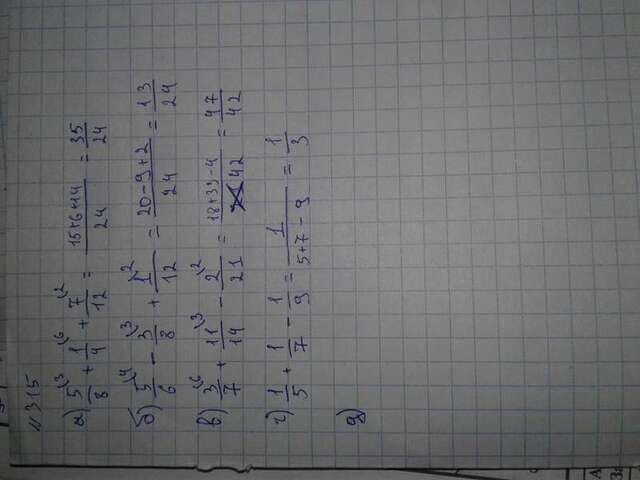 №315
а) 5/8 + 1/4 + 7/12 = 15+6+14/24 = 35/24
б) 5/6 - 3/8 + 1/12 = 20-9+2/24 = 13/24
в) 3/7 + 11/14 - 2/21 = 18+33-4/42 = 47/42
г) 1/5 + 1/7 - 1/9 = 1/5+7-9 = 1/3
д)